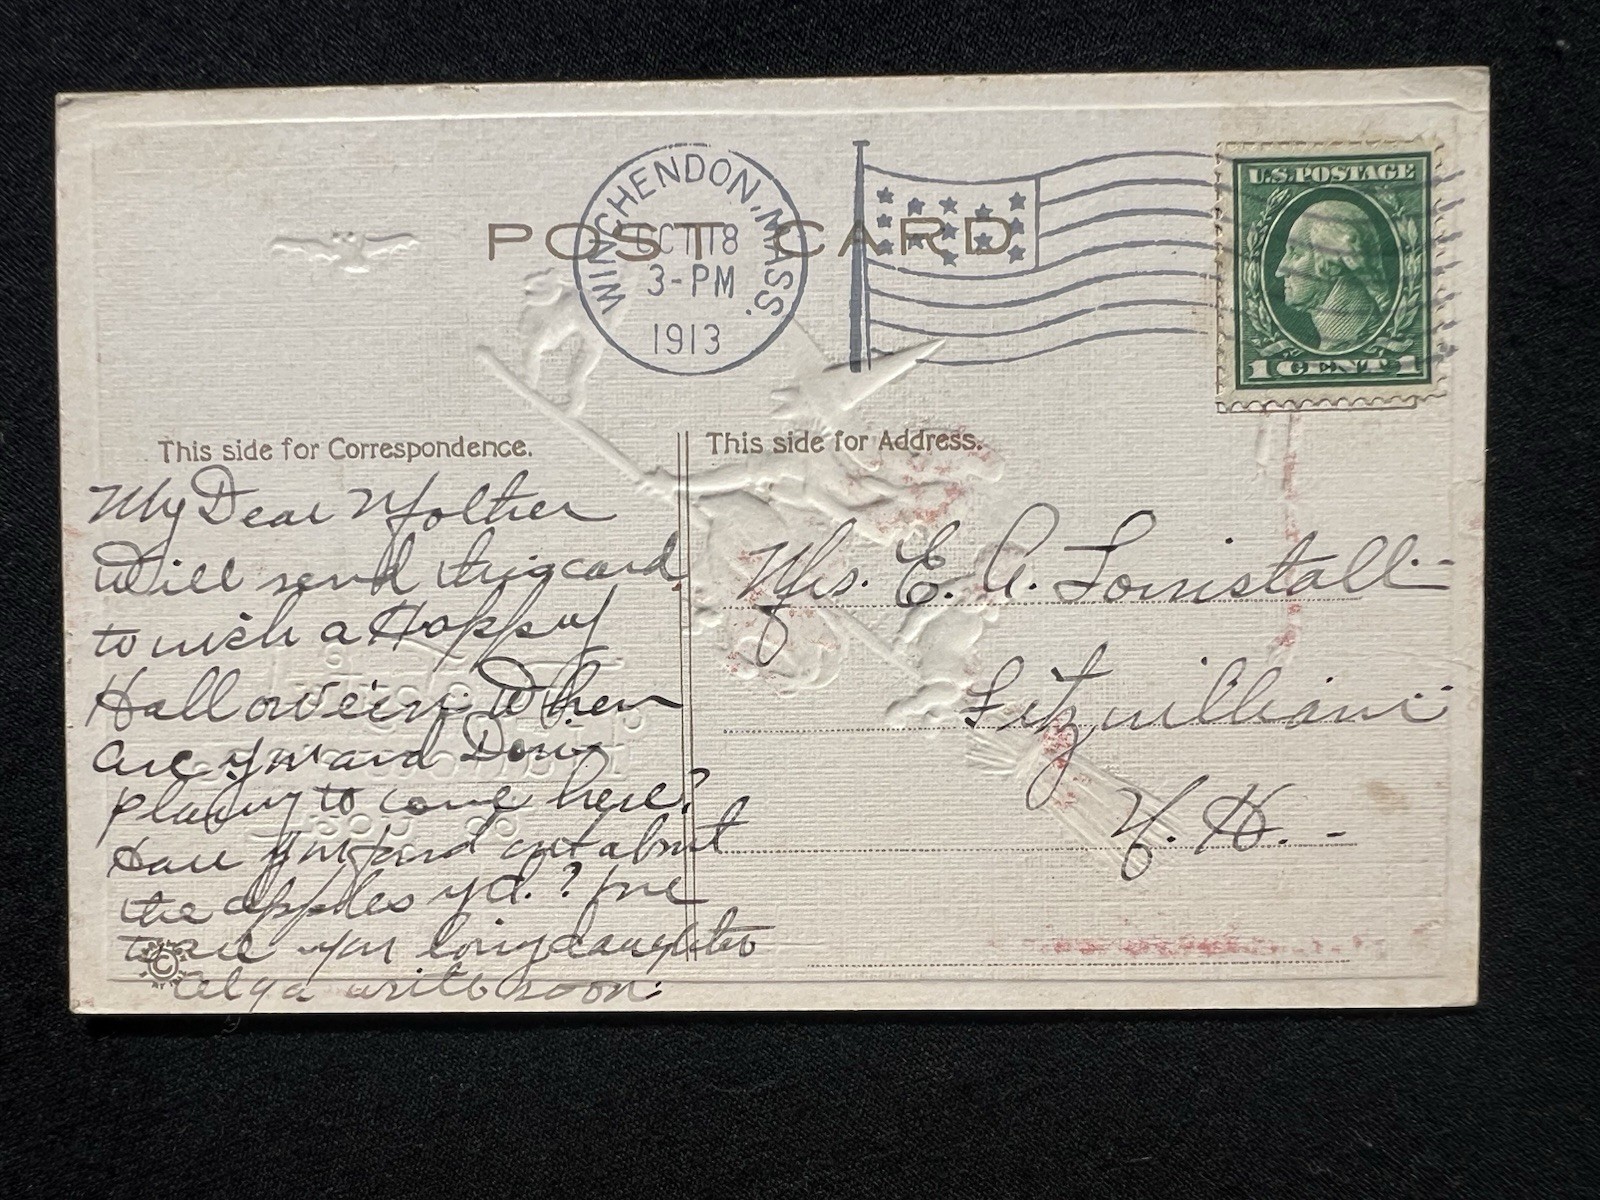 POST CARD
WINCHENDON, MASS.
OCT 18
3-PM
1913
U.S. POSTAGE
1 CENT 1
This side for Correspondence.
My Dear Mother
Will send this card
to wish a Happy
Halloween. When
are you and Dow
planing to come here?
Have you found out about
the apples yet.? 
you loving daughter
write soon.
This side for Address.
Mrs. E. A.
Fitzwilliam
N. H.